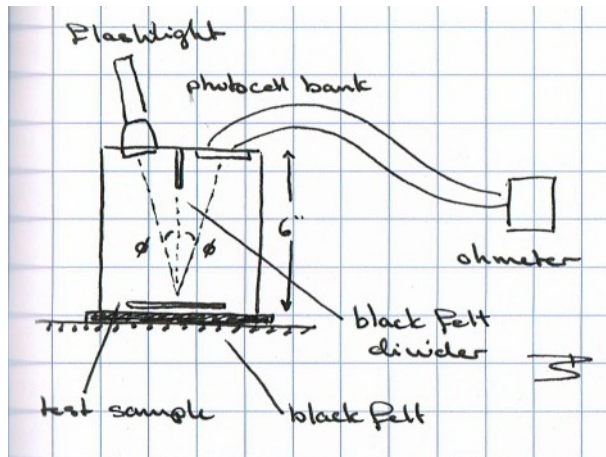 flashlight
photocell bank
φ φ
6"
ohmeter
black felt
divider
test sample
black felt